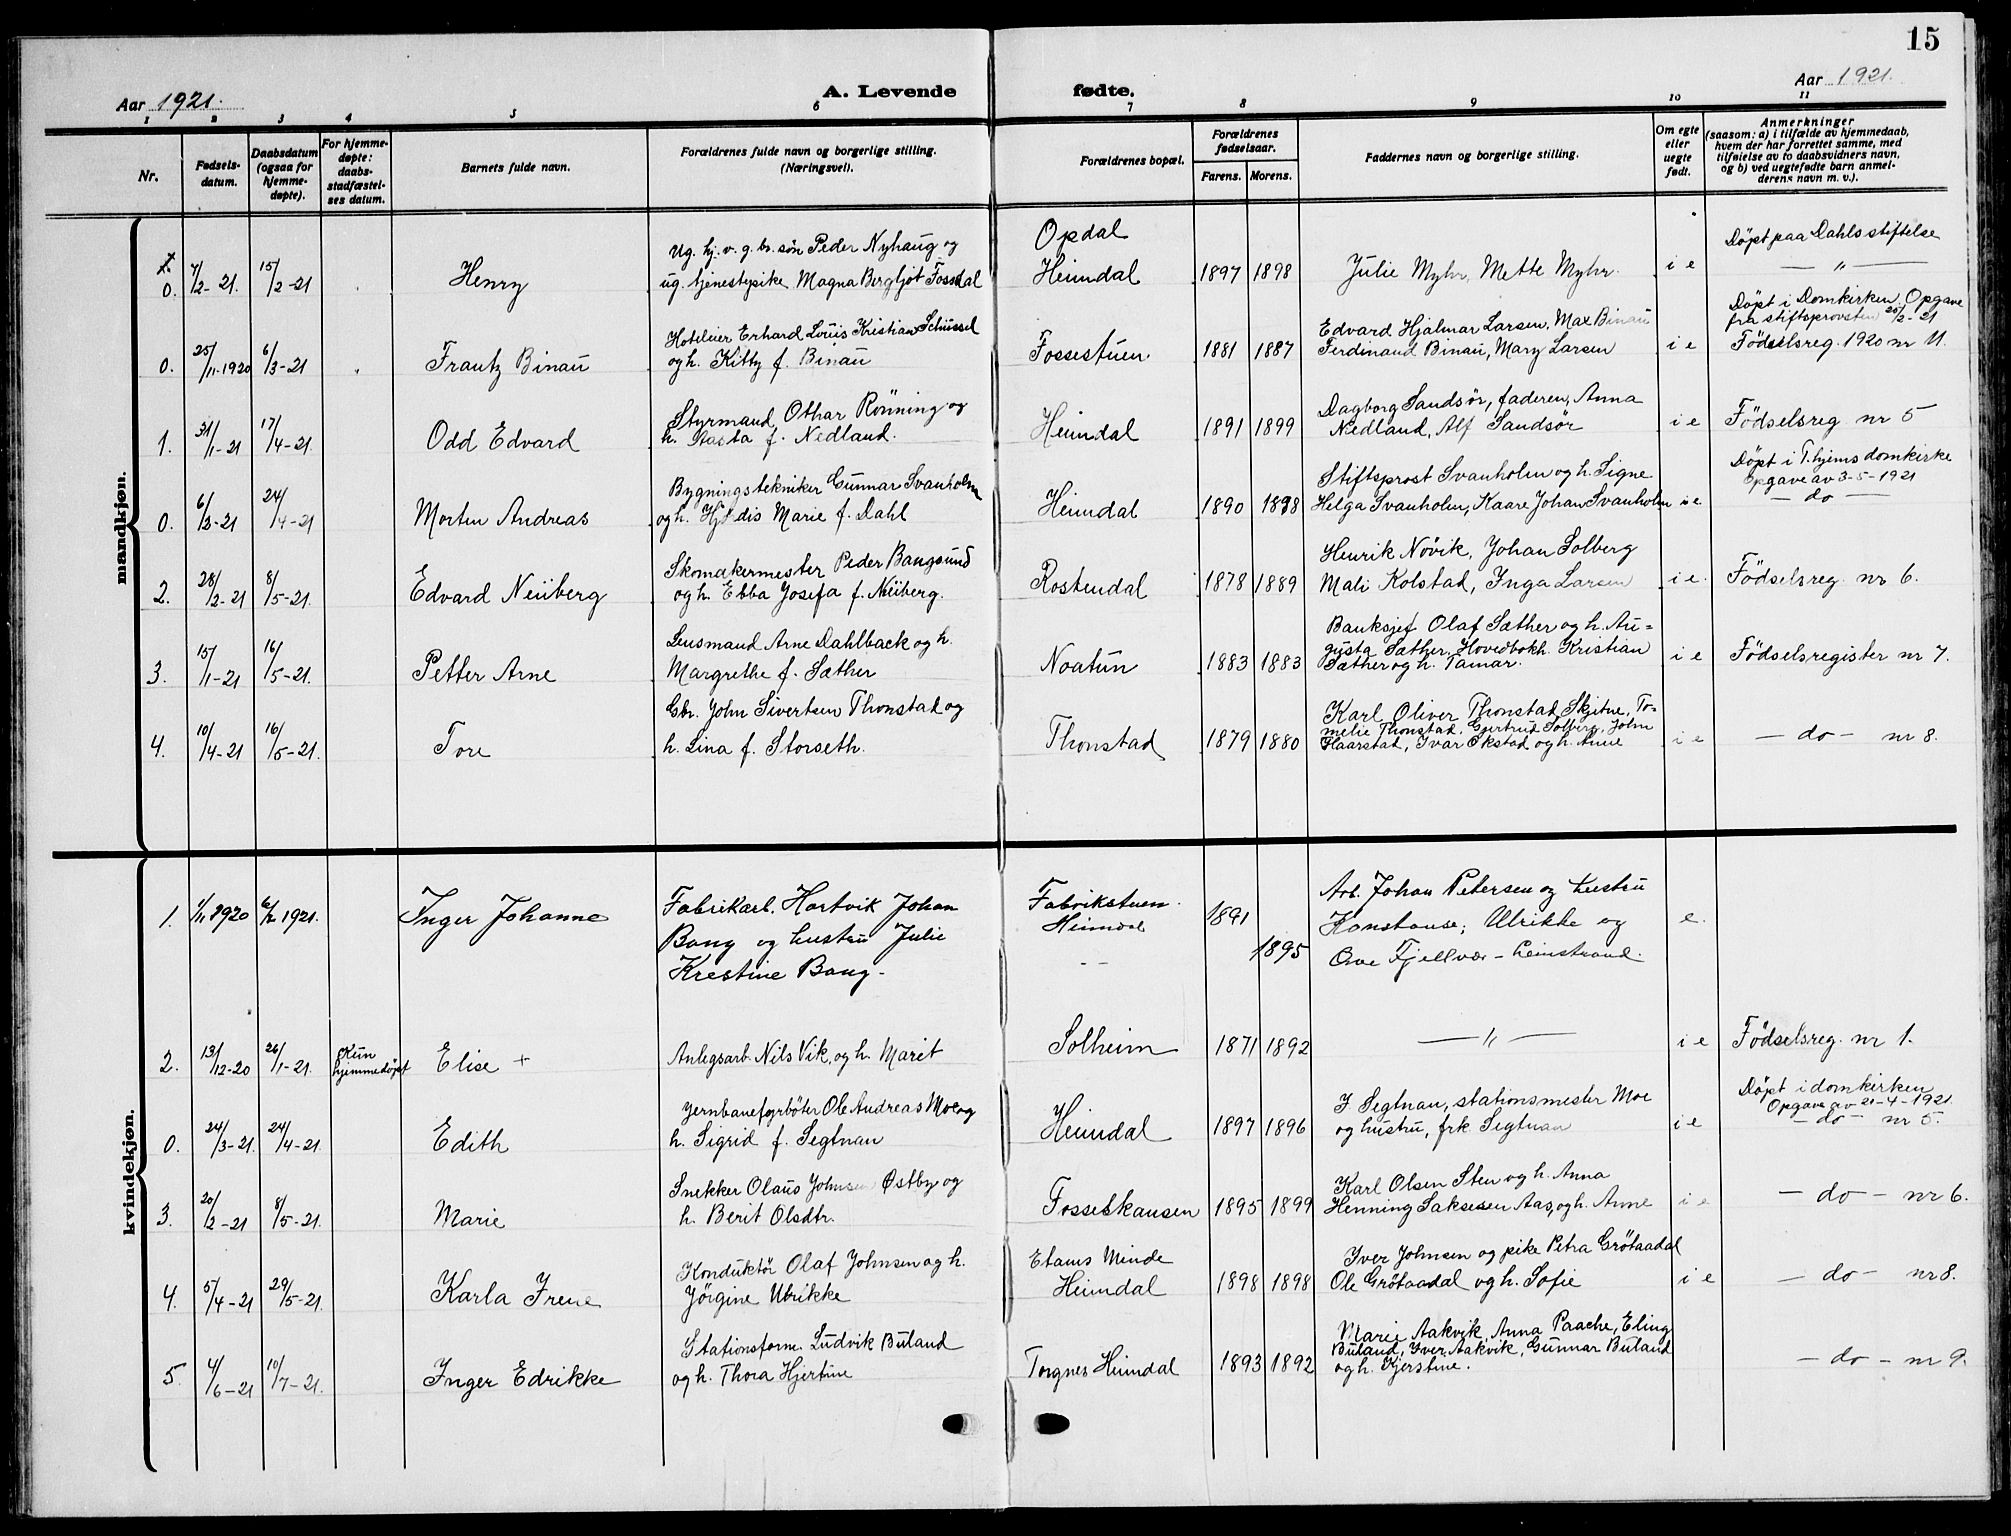 15
Aar 1921.
A. Levende fødte.
Aar 1921.
1 2 3 4 5 6 7 8 9 10 11
Nr.
Fødsels-
datum.
Daabsdatum
(ogsaa for
hjemme-
døpte).
For hjemme-
døpte:
daabs-
stadfæstel-
ses datum.
Barnets fulde navn.
Forældrenes fulde navn og borgerlige stilling.
(Næringsvei).
Forældrenes bopæl.
Forældrenes
fødselsaar.
Farens. Morens.
Faddernes navn og borgerlige stilling.
Om egte
eller
uegte
født.
Anmerkninger
(saasom: a) i tilfælde av hjemmedaab,
hvem der har forrettet samme, med
tilføielse av to daabsvidners navn,
og b) ved uegtefødte barn anmel-
derens navn m. v.).
mandkjøn.
0. 7/2-21. 15/2-21
Henry
Ug. hj. v. g. br. søn Peder Nyhaug og
ug. tjenestepike Magna Bergljot Fossdal
Opdal
Heimdal
1897 1898
Julie Myhr, Mette Myhr.
i e
Døpt paa Dahls stiftelse
— " —
0. 25/11-1920 6/3-21
Frantz Binau
Hoteleier Erhard Louis Kristian Schüssel
og h. Kitty f. Binau
Fossestuen
1881 1887
Edvard Hjalmar Larsen, Max Binau
Ferdinand Binau, Mary Larsen
i e
Døpt i Domkirken. Opgave
fra stiftsprovsten 25/2-21
Fødselsreg. 1920 nr 11.
1. 31/1-21 17/4-21.
Odd Edvard
Styrmand Othar Rönning og
h. Aasta f. Nedland.
Heimdal
1891 1899
Dagborg Sandsör, faderen, Anna
Nedland, Alf Sandsör
i e
Födselsreg nr 5
0. 6/3-21 24/4-21
Morten Andreas
Bygningstekniker Gunnar Svanholm
og h. Hjördis Marie f. Dahl
Heimdal
1890 1898
Stiftsprost Svanholm og h. Signe
Helga Svanholm, Kaare Johan Svanholm
i e
Døpt i T.hjems domkirke
Opgave av 3-5-1921
— do —
2. 28/2-21 8/5-21.
Edvard Neüberg
Skomakermester Peder Bangsund
og h. Ebba Josefa f. Neüberg.
Rostendal
1878 1889
Henrik Növik, Johan Solberg
Mali Kolstad, Inga Larsen
i e.
Födselsreg. nr 6.
3. 15/1-21 16/5-21.
Petter Arne
Lensmand Arne Dahlback og h.
Margrethe f. Sæther
Noatun
1883 1883
Banksjef Olaf Sæther og h. Au-
gusta Sæther, Hovedbokh. Kristian
Sæther og h. Tamar.
i e
Födselsregister nr 7.
4. 10/4-21 16/5-21.
Tore
Gbr. John Sivertsen Thonstad og
h. Lina f. Storseth.
Thonstad
1879 1880
Karl Oliver Thonstad Skjetne, To-
melie Thonstad, Gjertrud Solberg, John
Flaarstad, Ivar Ekstad og h. Anne
i e
— do — nr 8.
kvindekjøn.
1. 1/11 1920 6/2 1921.
Inger Johanne
Fabrikarb. Hartvik Johan
Bang og hustru Julie
Krestine Bang-
Fabrikstuen.
Heimdal
- -
1891
1895
Arb. Johan Petersen og hustru
Konstanse; Ulrikke og
Ove Fjellvær - Leinstrand.
e.
2. 13/12-20 26/1-21.
Kun
hjemmedøpt
Elise +
Anlegsarb. Nils Vik, og h. Marit
Solheim
1871 1892
— " —
i e
Födselsreg. nr 1.
0. 24/3-21. 24/4-21.
Edith
Jernbanefyrbøter Ole Andreas Moe og
h. Sigrid f. Segtnan
Heimdal
1897 1896
J. Segtnan, stationsmester Moe
og hustru, frk Segtnan
i e
Døpt i domkirken
Opgave av 21-4-1921.
— do — nr 5.
3. 20/2-21 8/5-21.
Marie
Snekker Olaus Johnsen Østby og
h. Berit Olsdtr.
Fosseskansen
1895 1899
Karl Olsen Sten og h. Anna
Henning Saksesen Aas, og h. Anne
i e
— do — nr 6.
4. 5/4-21 29/5-21.
Karla Irene
Konduktör Olaf Johnsen og h.
Jörgine Ulrikke
Etams Minde
Heimdal
1898 1898
Iver Johnsen og pike Petra Grötaadal
Ole Grötaadal og h. Sofie
i e
— do — nr 8.
5. 4/6-21 10/7-21.
Inger Edrikke
Stationsform. Ludvik Buland
og h. Thora Hjertine
Torgnes Heimdal
1893 1892
Marie Aakvik, Anna Paache, Eling
Buland, Iver Aakvik, Gunnar Buland
og h. Kjerstine.
— do — nr 9.